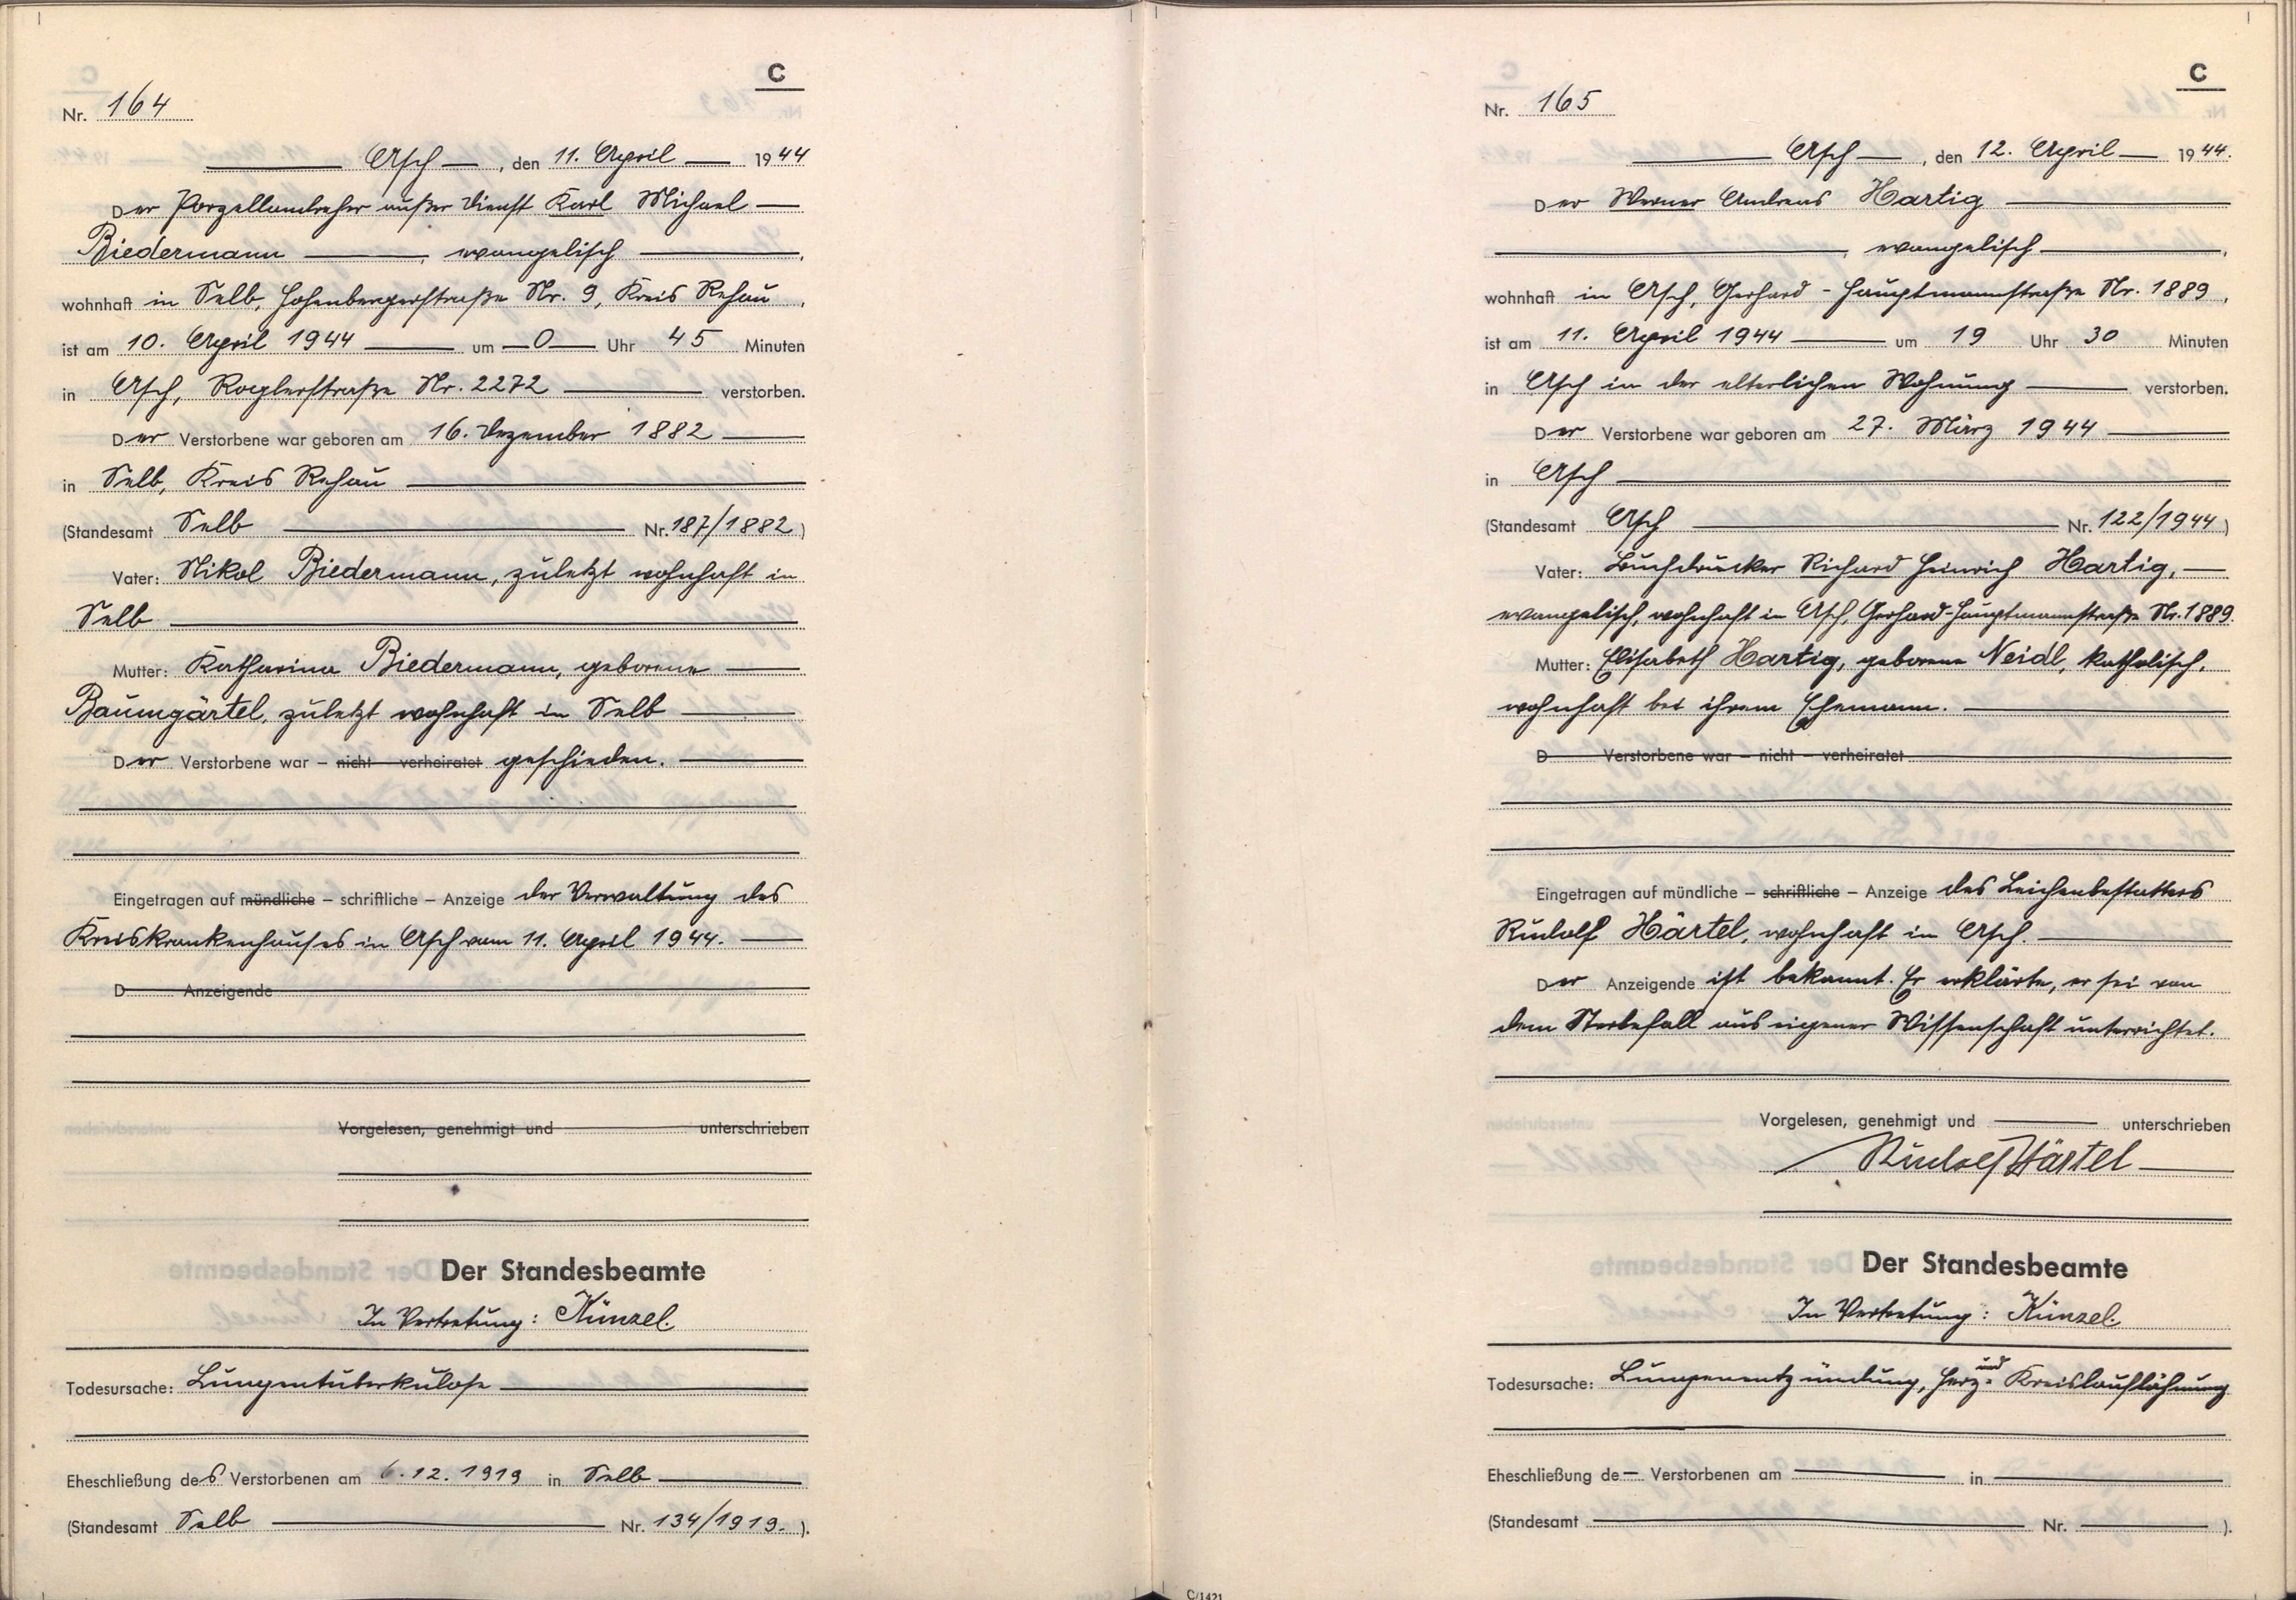 C
Nr. 164
Asch, den 11. April 1944
Der Porzellandreher außer Dienst Karl Michael
Biedermann, evangelisch,
wohnhaft in Selb, Hohenbergerstraße Nr. 9, Kreis Rehau,
ist am 10. April 1944 um 0 Uhr 45 Minuten
in Asch, Roglerstraße Nr. 2272 verstorben.
Der Verstorbene war geboren am 16. Dezember 1882
in Selb, Kreis Rehau
(Standesamt Selb Nr. 187/1882)
Vater: Nikol Biedermann, zuletzt wohnhaft in
Selb
Mutter: Katharina Biedermann, geborene
Baumgärtel, zuletzt wohnhaft in Selb
Der Verstorbene war – nicht – verheiratet geschieden.
Eingetragen auf mündliche – schriftliche – Anzeige der Verwaltung des
Kreiskrankenhauses in Asch vom 11. April 1944.
D Anzeigende
Vorgelesen, genehmigt und unterschrieben
Der Standesbeamte
In Vertretung: Künzel.
Todesursache: Lungentuberkulose
Eheschließung des Verstorbenen am 6.12.1919 in Selb
(Standesamt Selb Nr. 134/1919.).
C
Nr. 165
Asch, den 12. April 1944.
Der Werner Andreas Hartig
, evangelisch,
wohnhaft in Asch, Gerhard-Hauptmannstraße Nr. 1889,
ist am 11. April 1944 um 19 Uhr 30 Minuten
in Asch in der elterlichen Wohnung verstorben.
Der Verstorbene war geboren am 27. März 1944
in Asch
(Standesamt Asch Nr. 122/1944)
Vater: Buchdrucker Richard Heinrich Hartig,
evangelisch, wohnhaft in Asch, Gerhard-Hauptmannstraße Nr. 1889.
Mutter: Elisabeth Hartig, geborene Neidl, katholisch,
wohnhaft bei ihrem Ehemann.
D Verstorbene war – nicht – verheiratet
Eingetragen auf mündliche – schriftliche – Anzeige des Leichenbestatters
Rudolf Härtel, wohnhaft in Asch.
Der Anzeigende ist bekannt. Er erklärte, er sei von
dem Sterbefall aus eigener Wissenschaft unterrichtet.
Vorgelesen, genehmigt und unterschrieben
Rudolf Härtel
Der Standesbeamte
In Vertretung: Künzel.
Todesursache: Lungenentzündung, Herz- und Kreislauflähmung
Eheschließung de Verstorbenen am in
(Standesamt Nr. ).
C/1421